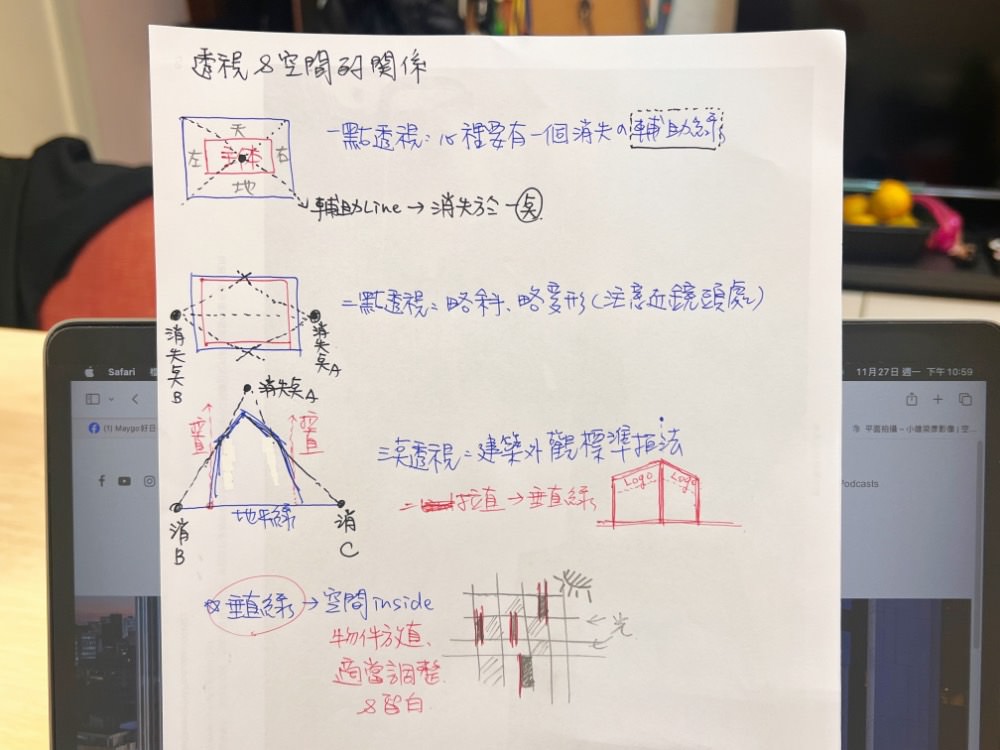 透視 & 空間的關係
天
左 主体 右
地
一點透視：心裡要有一個消失の輔助線
輔助Line → 消失於一点
二點透視：略斜、略變形（注意近鏡頭處）
消失点B
消失点A
消失点A
垂直
垂直
三点透視：建築外觀標準拍法
= 拉直 → 垂直線
Logo Logo
地平線
消B
消C
垂直線 → 空間 inside
物件放直、
適當調整
& 留白
← 光
Safari
11月27日 週一 下午10:59
(1) Maygo好日
Podcasts